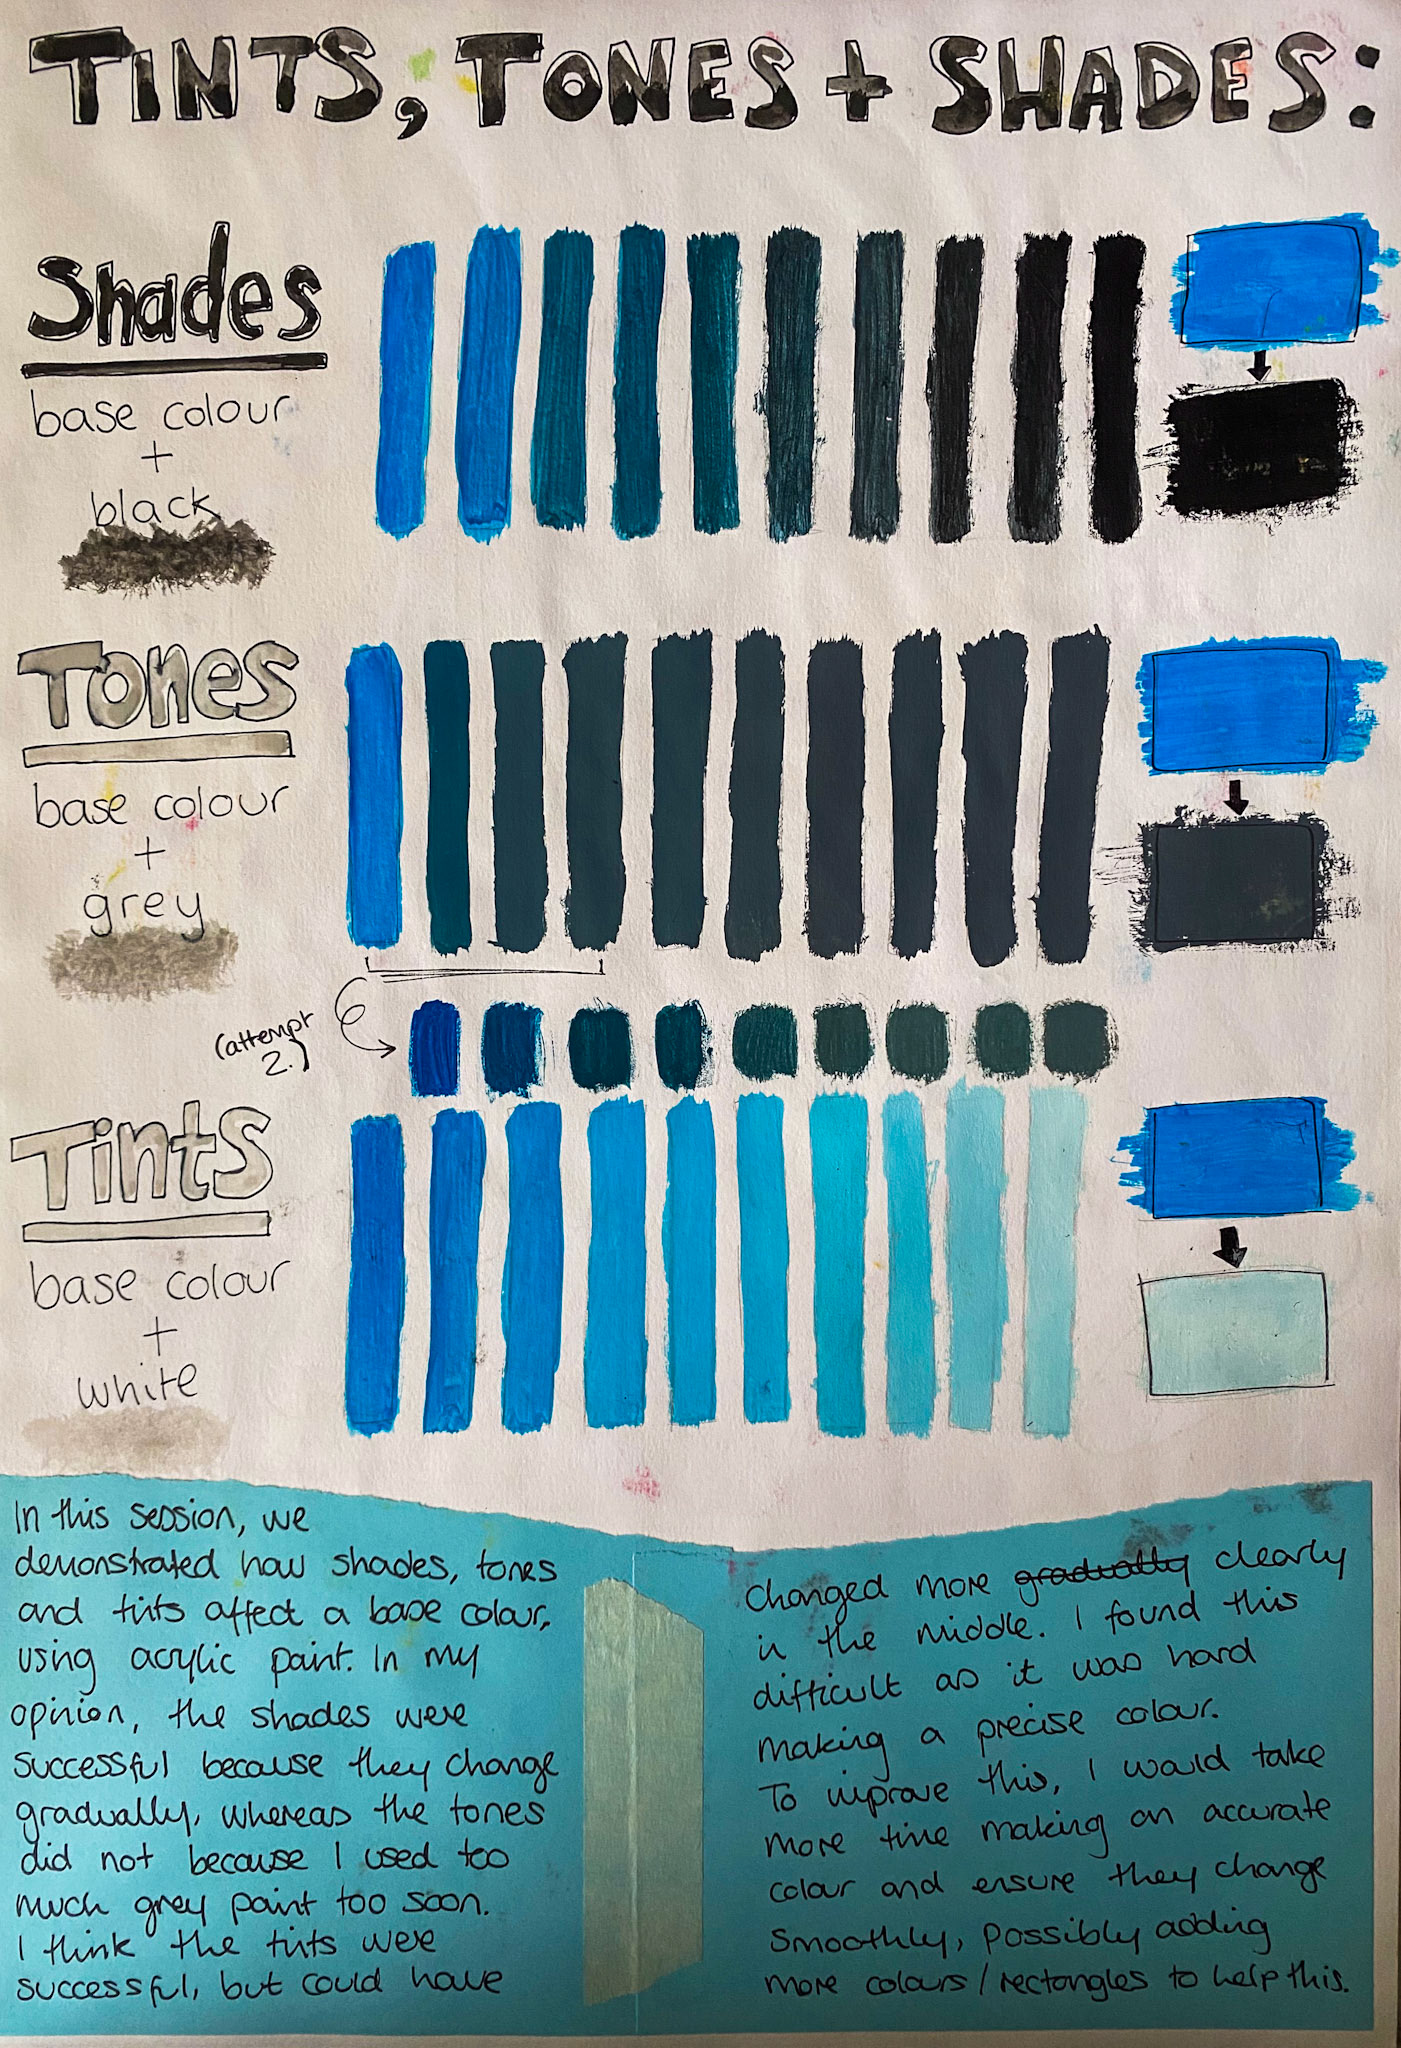 TINTS, TONES + SHADES:
Shades
base colour
+
black
Tones
base colour
+
grey
(attempt
2.)
Tints
base colour
+
white
In this session, we
demonstrated how shades, tones
and tints affect a base colour,
using acrylic paint. In my
opinion, the shades were
successful because they change
gradually, whereas the tones
did not because I used too
much grey paint too soon.
I think the tints were
successful, but could have
changed more gradually clearly
in the middle. I found this
difficult as it was hard
making a precise colour.
To improve this, I would take
more time making an accurate
colour and ensure they change
smoothly, possibly adding
more colours/rectangles to help this.